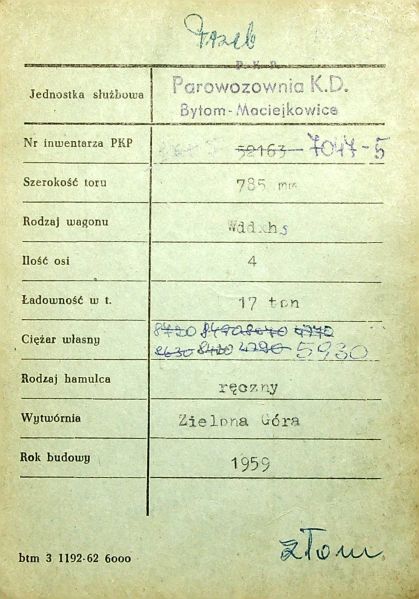 P.K.P.
Jednostka służbowa Parowozownia K.D.
Bytom-Maciejkowice
Nr inwentarza PKP 52163 7047-5
Szerokość toru 785 mm
Rodzaj wagonu Wddxhs
Ilość osi 4
Ładowność w t. 17 ton
Ciężar własny 8420
5930
Rodzaj hamulca ręczny
Wytwórnia Zielona Góra
Rok budowy 1959
złom
btm 3 1192-62 6000